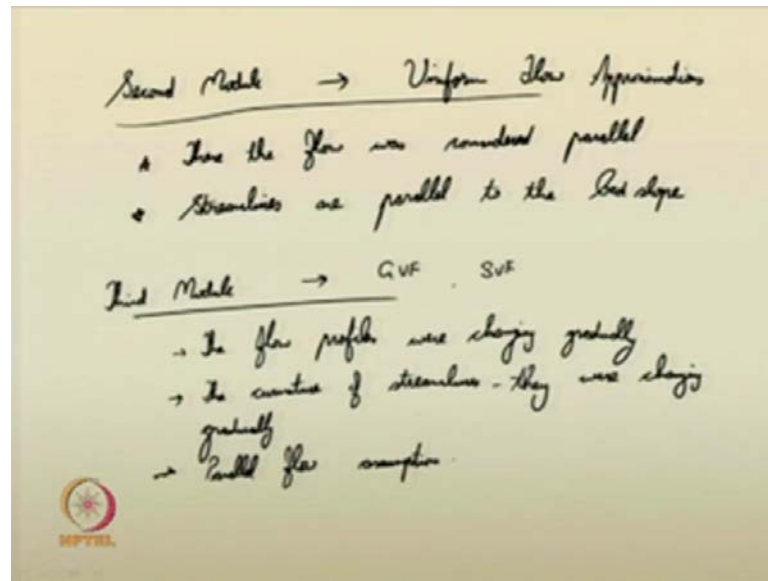 Second Module → Uniform Flow Approximations
There the flow was considered parallel
Streamlines are parallel to the bed slope
Third Module → GVF . SVF
→ The flow profiles were changing gradually
→ The curvature of streamlines - they were changing
gradually
→ Parallel flow assumption.
NPTEL